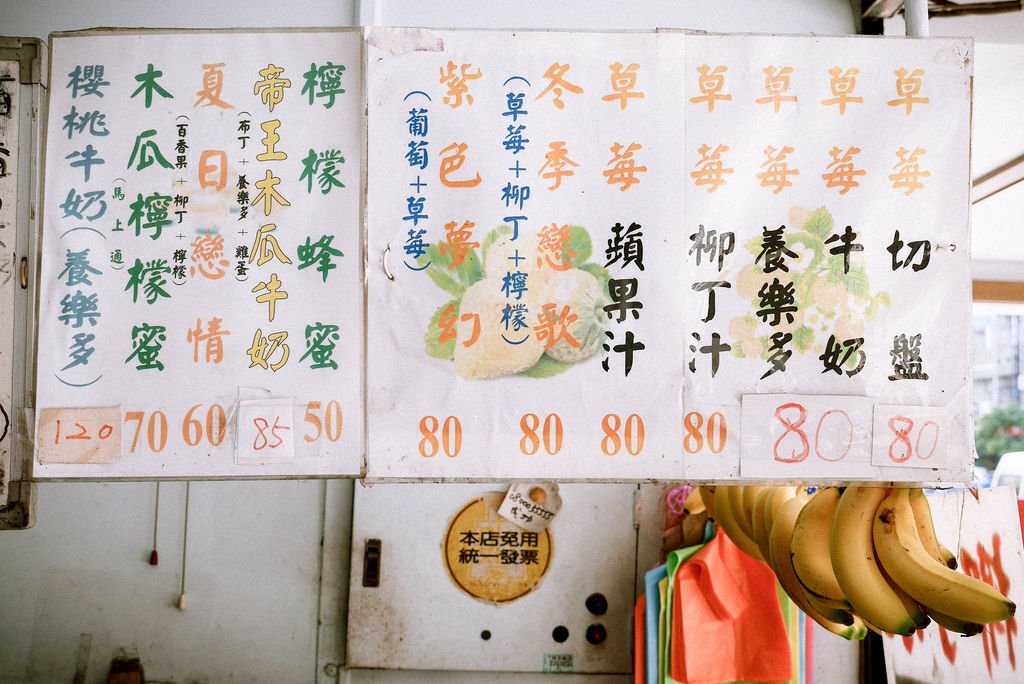 草莓切盤
80
草莓牛奶
草莓養樂多
80
草莓柳丁汁
80
草莓蘋果汁
80
冬季戀歌
(草莓+柳丁+檸檬)
80
紫色夢幻
(葡萄+草莓)
80
檸檬蜂蜜
50
帝王木瓜牛奶
(布丁+養樂多+雞蛋)
85
夏日戀情
(百香果+柳丁+檸檬)
60
木瓜檸檬蜜
(馬上通)
70
櫻桃牛奶(養樂多)
120
本店免用
統一發票